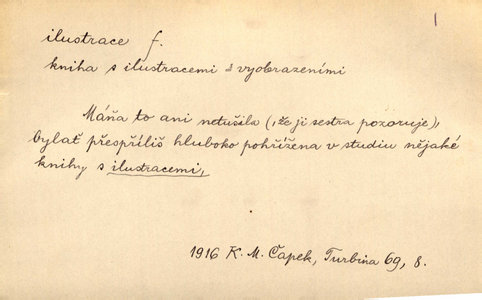 1
ilustrace f.
kniha s ilustracemi s vyobrazeními
Máňa to ani netušila (, že ji sestra pozoruje),
bylať přespříliš hluboko pohřížena v studiu nějaké
knihy s ilustracemi,
1916 K. M. Čapek, Turbina 69, 8.